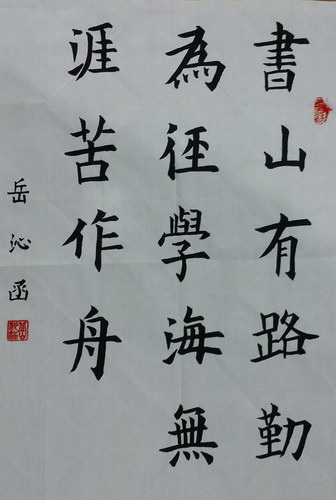 書山有路勤
為徑學海無
涯苦作舟
岳沁函